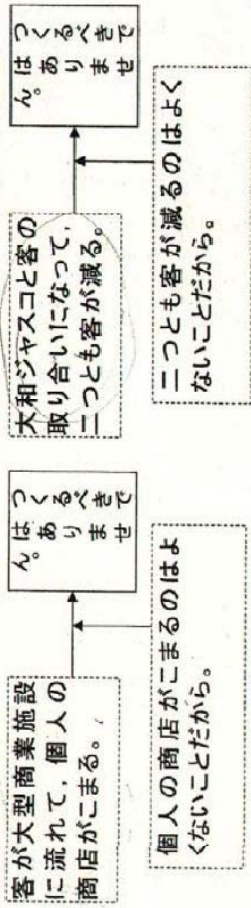 客が大型商業施設
に流れて，個人の
商店がこまる。
つくるべきで
はありませ
ん。
個人の商店がこまるのはよ
くないことだから。
大和ジャスコと客の
取り合いになって，
二つとも客が減る。
つくるべきで
はありませ
ん。
二つとも客が減るのはよく
ないことだから。